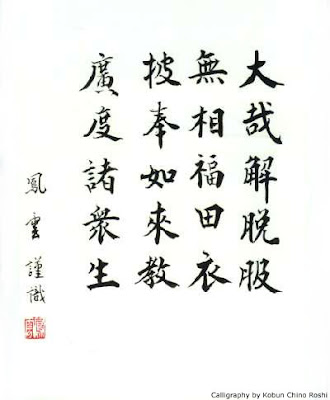 大哉解脱服
無相福田衣
披奉如來教
廣度諸衆生
鳳雲謹識
Calligraphy by Kobun Chino Roshi